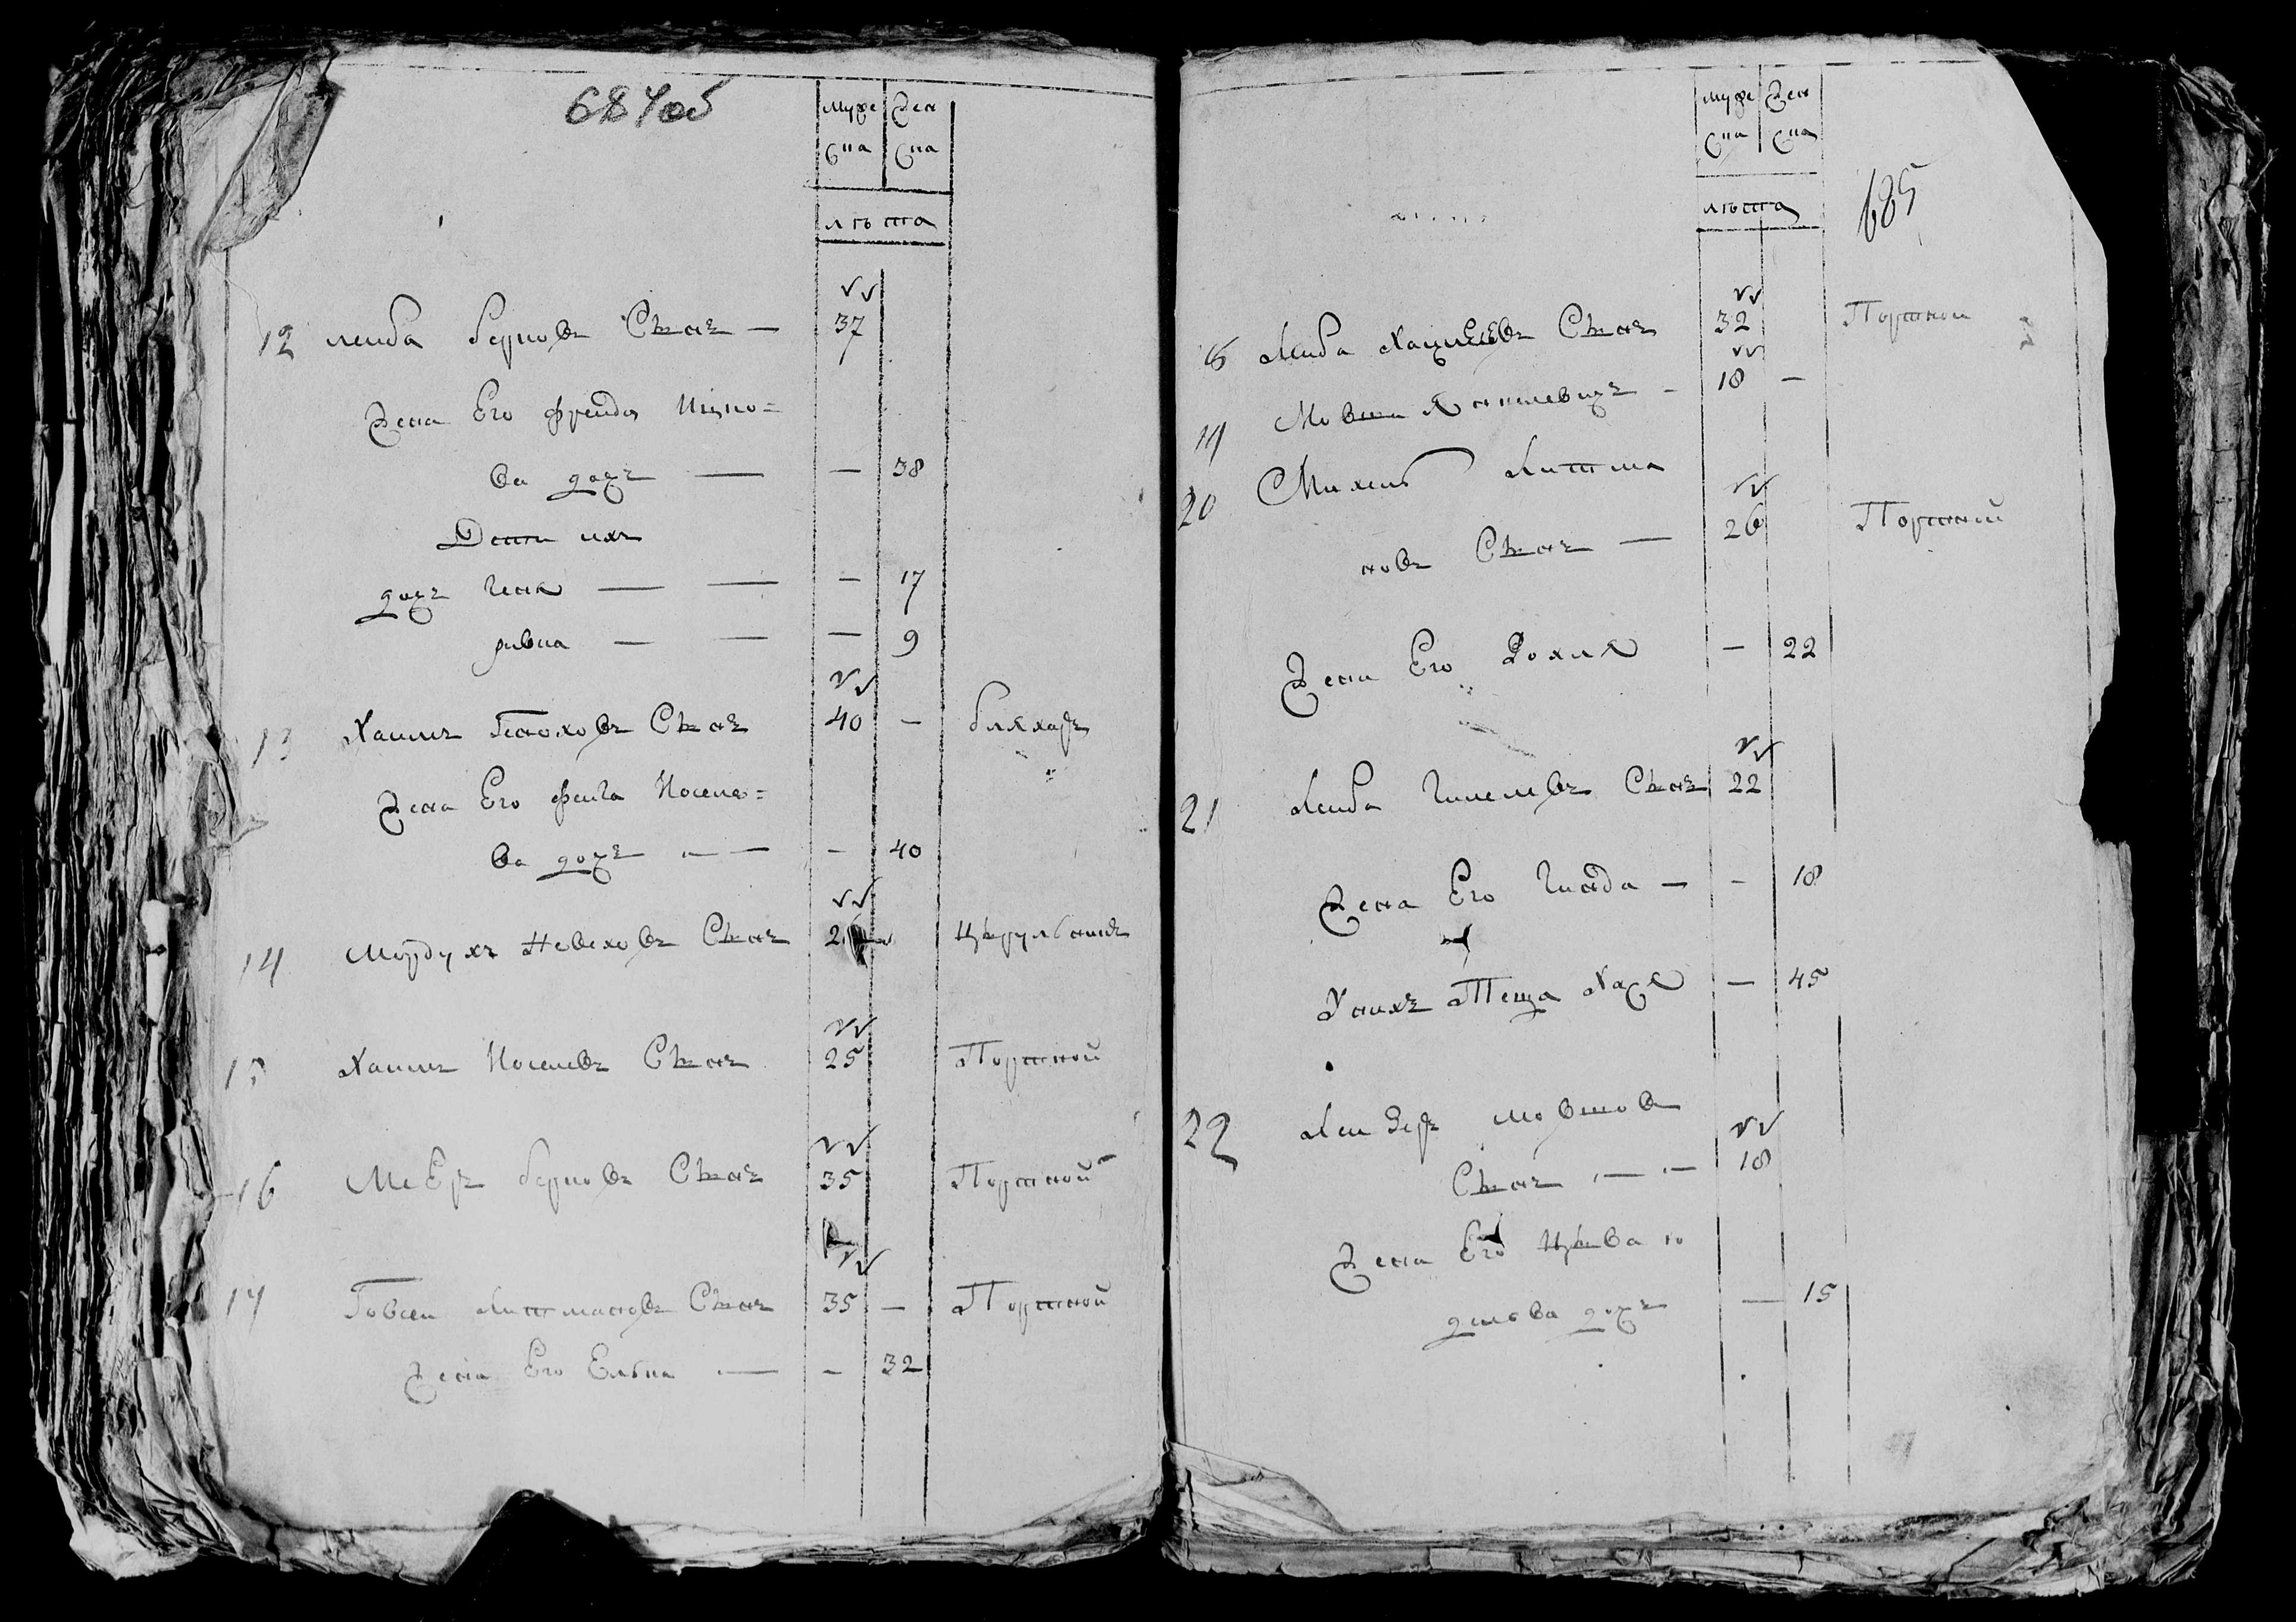 684об
муже жен
ска ска
лѣта
12 лейба берковъ Сынъ — 37
Жена Его фрейда Ицко=
ва дочь — — 38
Дети ихъ
дочь геня — — — 17
ривка — — — 9
13 Хаимъ Геноховъ Сынъ 40 — бляхаръ
Жена Его фейга Иоселе=
ва дочь — — — 40
14 Мордухъ Сынъ Цырульникъ
15 Хаимъ Иоселевъ Сынъ 25 Портной
16 МеЕръ берковъ Сынъ 35 Портной
17 Говсей Литмановъ Сынъ 35 — Портной
жена Его Елька — — 32
муже жен
ска ска
лѣта
685
18 Лейба Сынъ 32 Портной
19 Мовша Янкелевичъ — 18 —
20 Михель Литма
новъ Сынъ — 26 Портной
Жена Его Рохля — 22
21 Лейба Гимпелевъ Сынъ 22
Жена Его Гинда — — 18
У нихъ Теща Хася — 45
22 Лейзеръ мовшов
Сынъ — — 18
Жена Его Цывья ю
делева дочь — 15